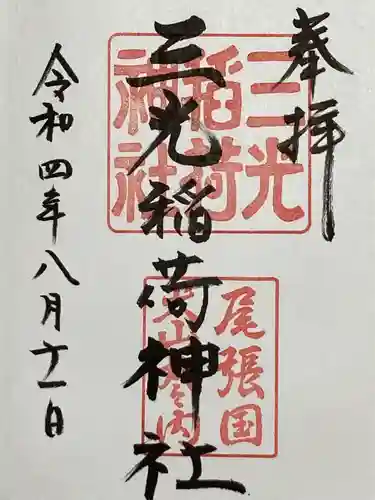 奉拝
三光稲荷神社
令和四年八月十一日
三光
稲荷
神社
尾張国